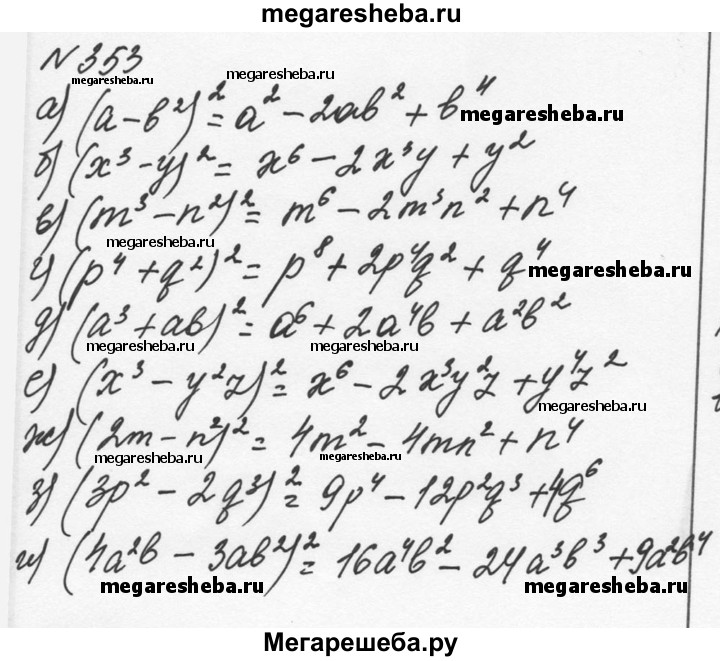 megaresheba.ru
N 353
megaresheba.ru megaresheba.ru
а) (a-b²)² = a² - 2ab² + b⁴
megaresheba.ru
б) (x³-y)² = x⁶ - 2x³y + y²
в) (m³-n²)² = m⁶ - 2m³n² + n⁴
megaresheba.ru
г) (p⁴+q²)² = p⁸ + 2p⁴q² + q⁴
megaresheba.ru
д) (a³+ab)² = a⁶ + 2a⁴b + a²b²
megaresheba.ru megaresheba.ru
е) (x³-y²z)² = x⁶ - 2x³y²z + y⁴z²
megaresheba.ru
ж) (2m-n²)² = 4m² - 4mn² + n⁴
megaresheba.ru megaresheba.ru
з) (3p²-2q³)² = 9p⁴ - 12p²q³ + 4q⁶
и) (4a²b-3ab²)² = 16a⁴b² - 24a³b³ + 9a²b⁴
megaresheba.ru megaresheba.ru
Мегарешеба.ру